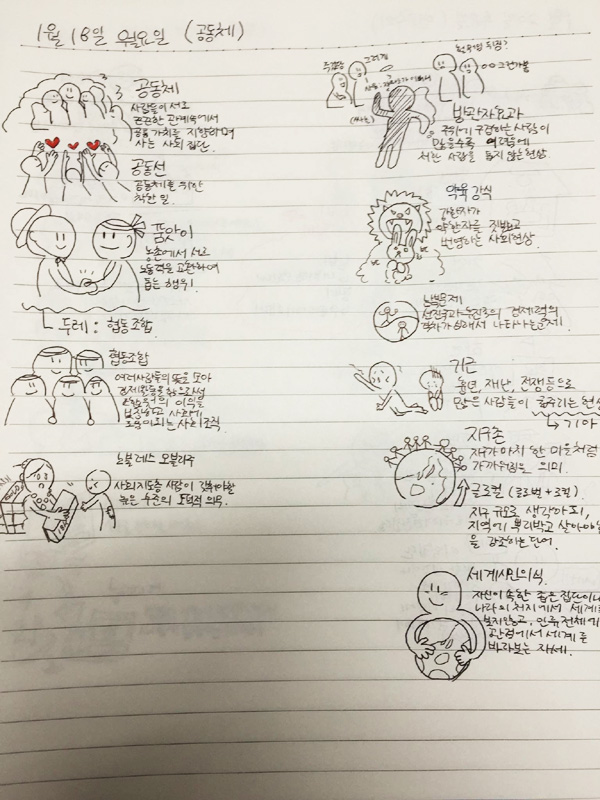 1월 18일 월요일 (공동체)
공동체
사람들이 서로
끈끈한 관계속에서
공동 가치를 지향하며
사는 사회 집단.
공동선
공동체를 위한
착한 일.
품앗이
농촌에서 서로
노동력을 교환하여
돕는 행위.
두레 : 협동 조합
협동조합
여러사람들의 뜻을 모아
경제활동을 함으로써
이익을
사회에
도움이되는 사회조직
노블레스 오블리주
사회지도층 사람이 갖춰야할
높은 수준의 도덕적 의무.
방관자효과
주위에 구경하는 사람이
많을수록 어려움에
처한 사람을 돕지 않는현상.
약육강식
강한자가
약한자를 짓밟고
번영하는 사회현상.
남북문제
선진국과 후진국의 경제력의
격차가 심해서 나타나는문제.
기근
흉년, 재난, 전쟁등으로
많은 사람들이 굶주리는 현상
기아
지구촌
지구가 마치 한 마을처럼
가까워짐을 의미.
글로컬 (글로벌 + 로컬)
지구 규모로 생각하되,
지역에 뿌리박고 살아야
을 강조하는단어.
세계시민의식.
자신이 속한 좁은 집단이나
나라의 처지에서 세계를
보지않고, 인류 전체에
관점에서 세계를
바라보는 자세.